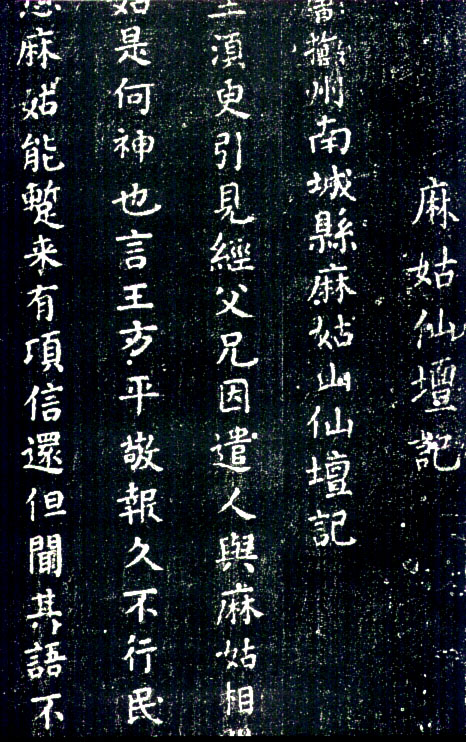 麻姑仙壇記
撫州南城縣麻姑山仙壇記
須更引見經父兄因遣人與麻姑相
是何神也言王方平敬報久不行民
麻姑能蹔来有項信還但聞其語不